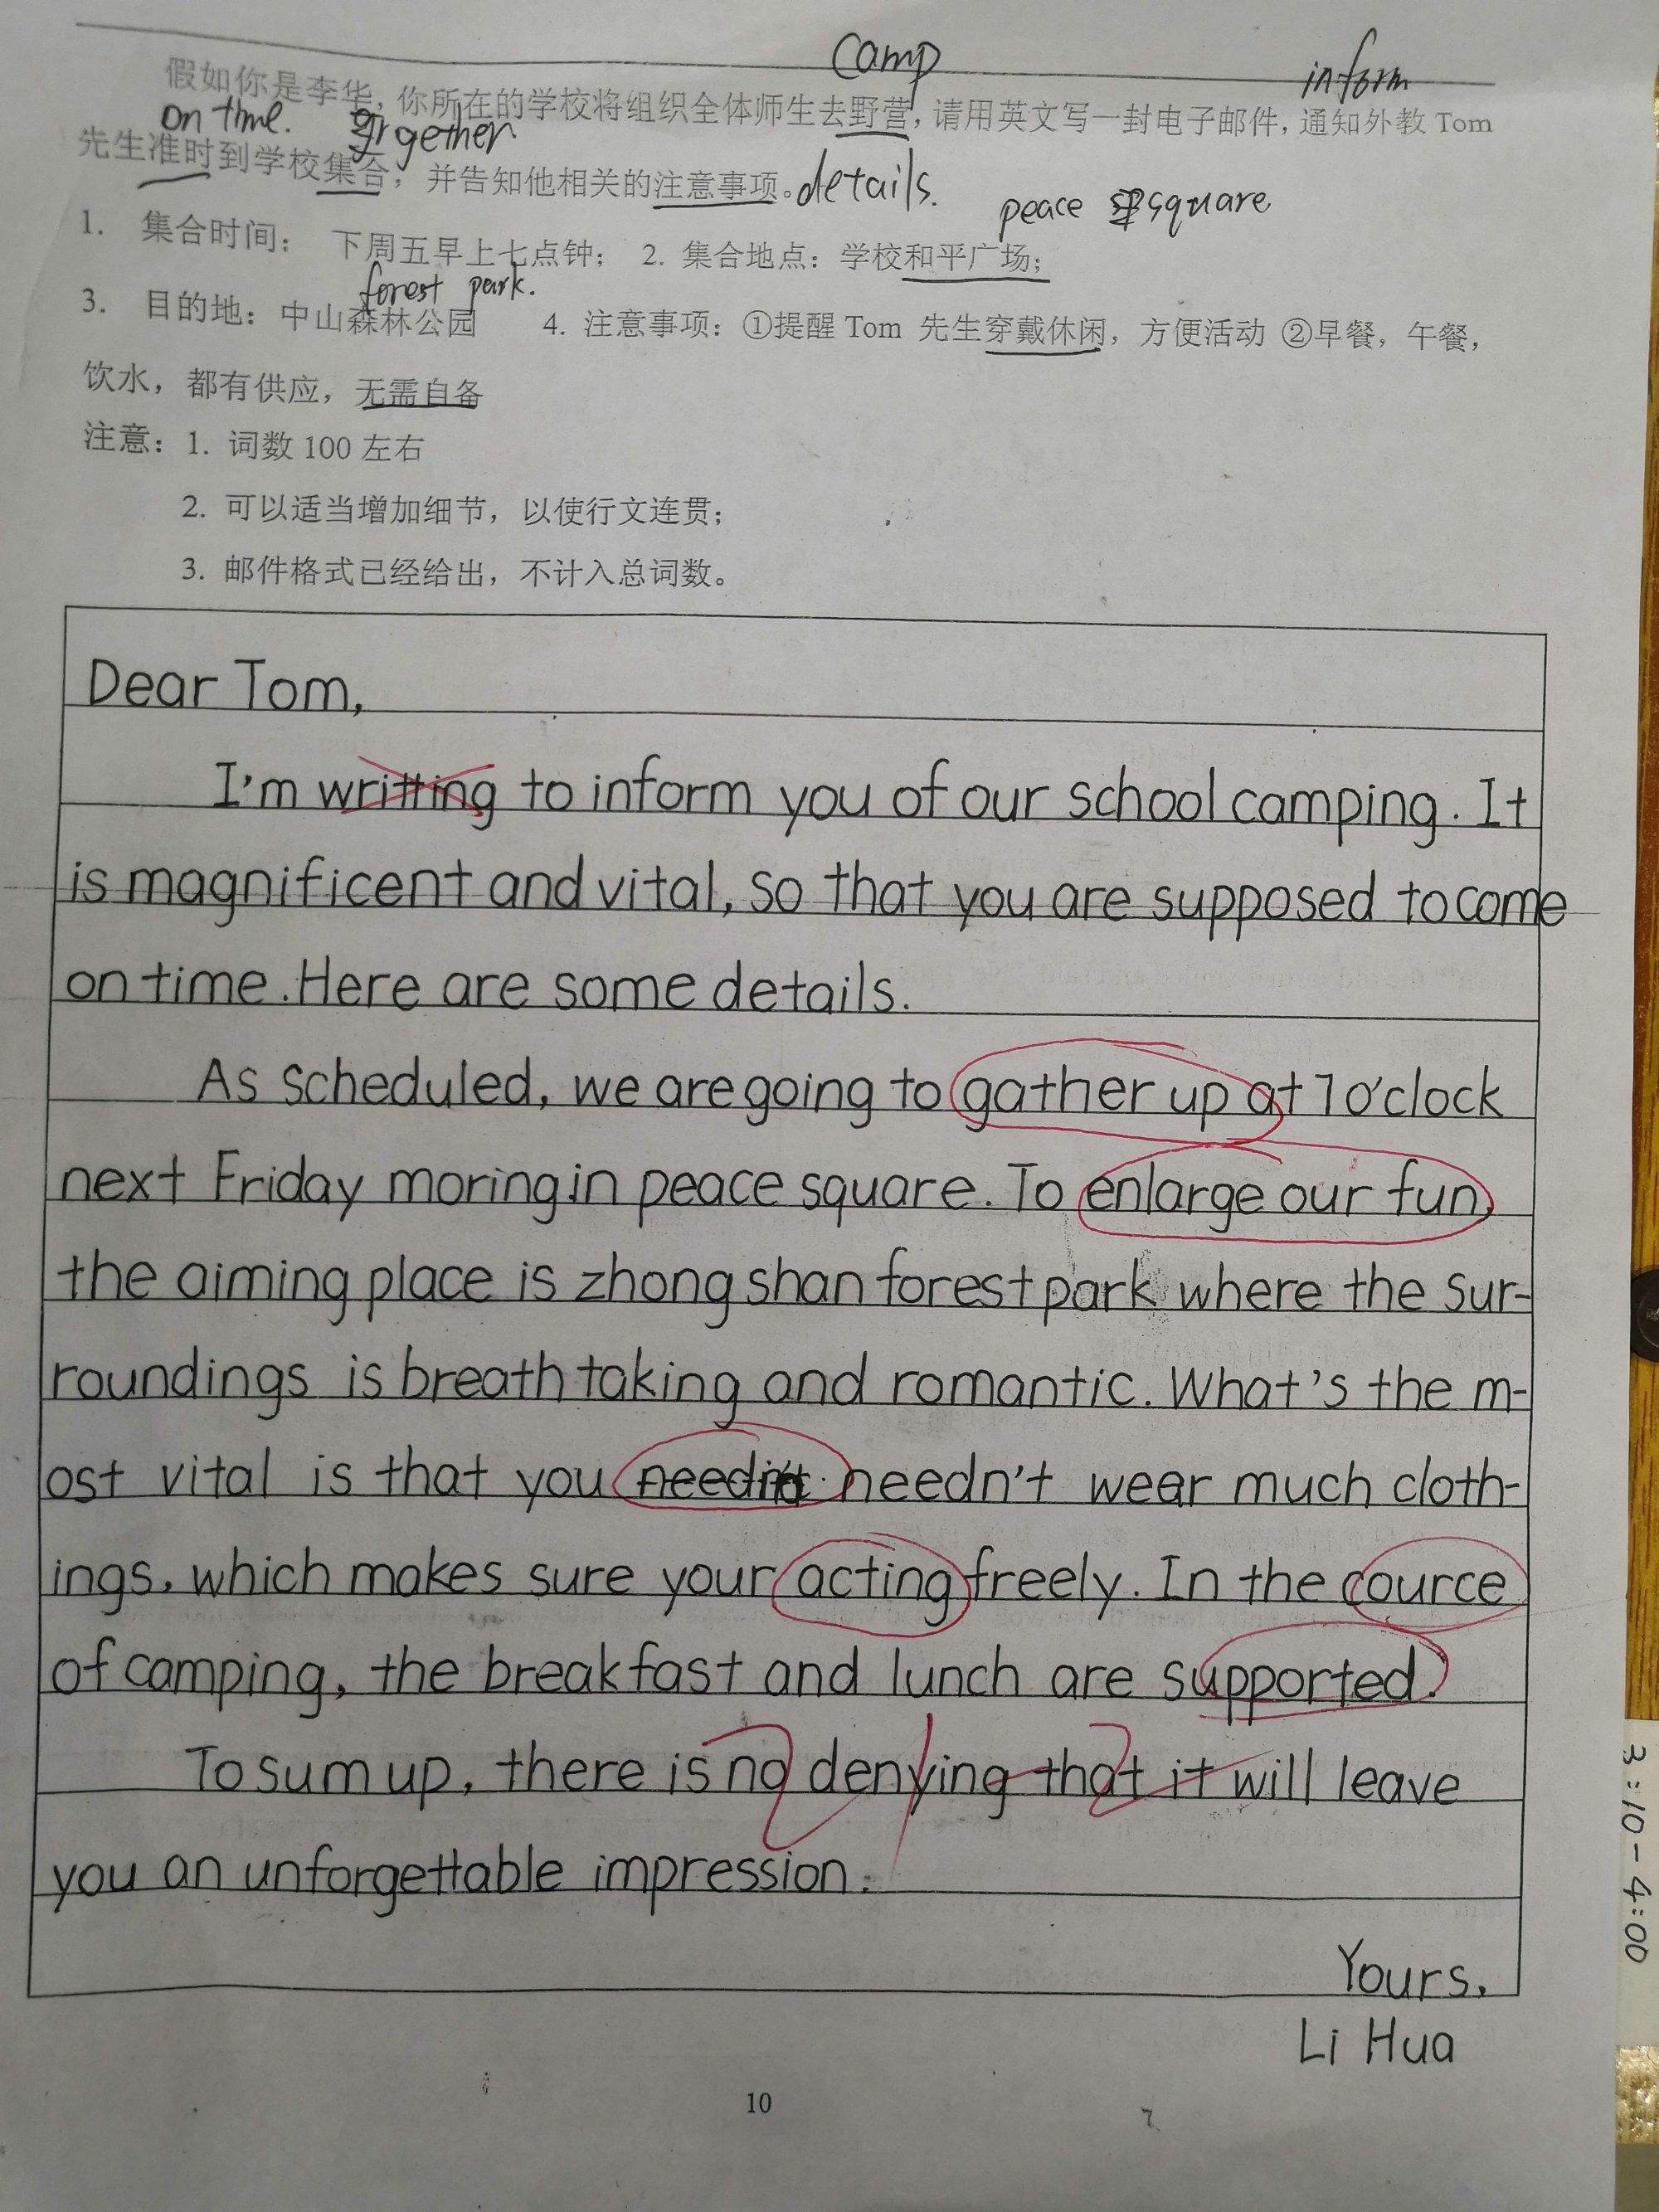 camp inform
假如你是李华，你所在的学校将组织全体师生去野营，请用英文写一封电子邮件，通知外教 Tom
on time. gether
先生准时到学校集合，并告知他相关的注意事项。details.
peace square
1. 集合时间： 下周五早上七点钟； 2. 集合地点：学校和平广场；
forest park.
3. 目的地：中山森林公园 4. 注意事项：①提醒 Tom 先生穿戴休闲，方便活动 ②早餐，午餐，
饮水，都有供应，无需自备
注意：1. 词数 100 左右
2. 可以适当增加细节，以使行文连贯；
3. 邮件格式已经给出，不计入总词数。
Dear Tom,
I'm writting to inform you of our school camping. It
is magnificent and vital, so that you are supposed to come
on time. Here are some details.
As scheduled, we are going to gather up at 7 o'clock
next Friday moring in peace square. To enlarge our fun,
the aiming place is zhong shan forest park where the sur-
roundings is breath taking and romantic. What's the m-
ost vital is that you needn't wear much cloth-
ings, which makes sure your acting freely. In the cource
of camping, the breakfast and lunch are supported.
To sum up, there is no denying that it will leave
you an unforgettable impression.
Yours,
Li Hua
10
3:10-4:00